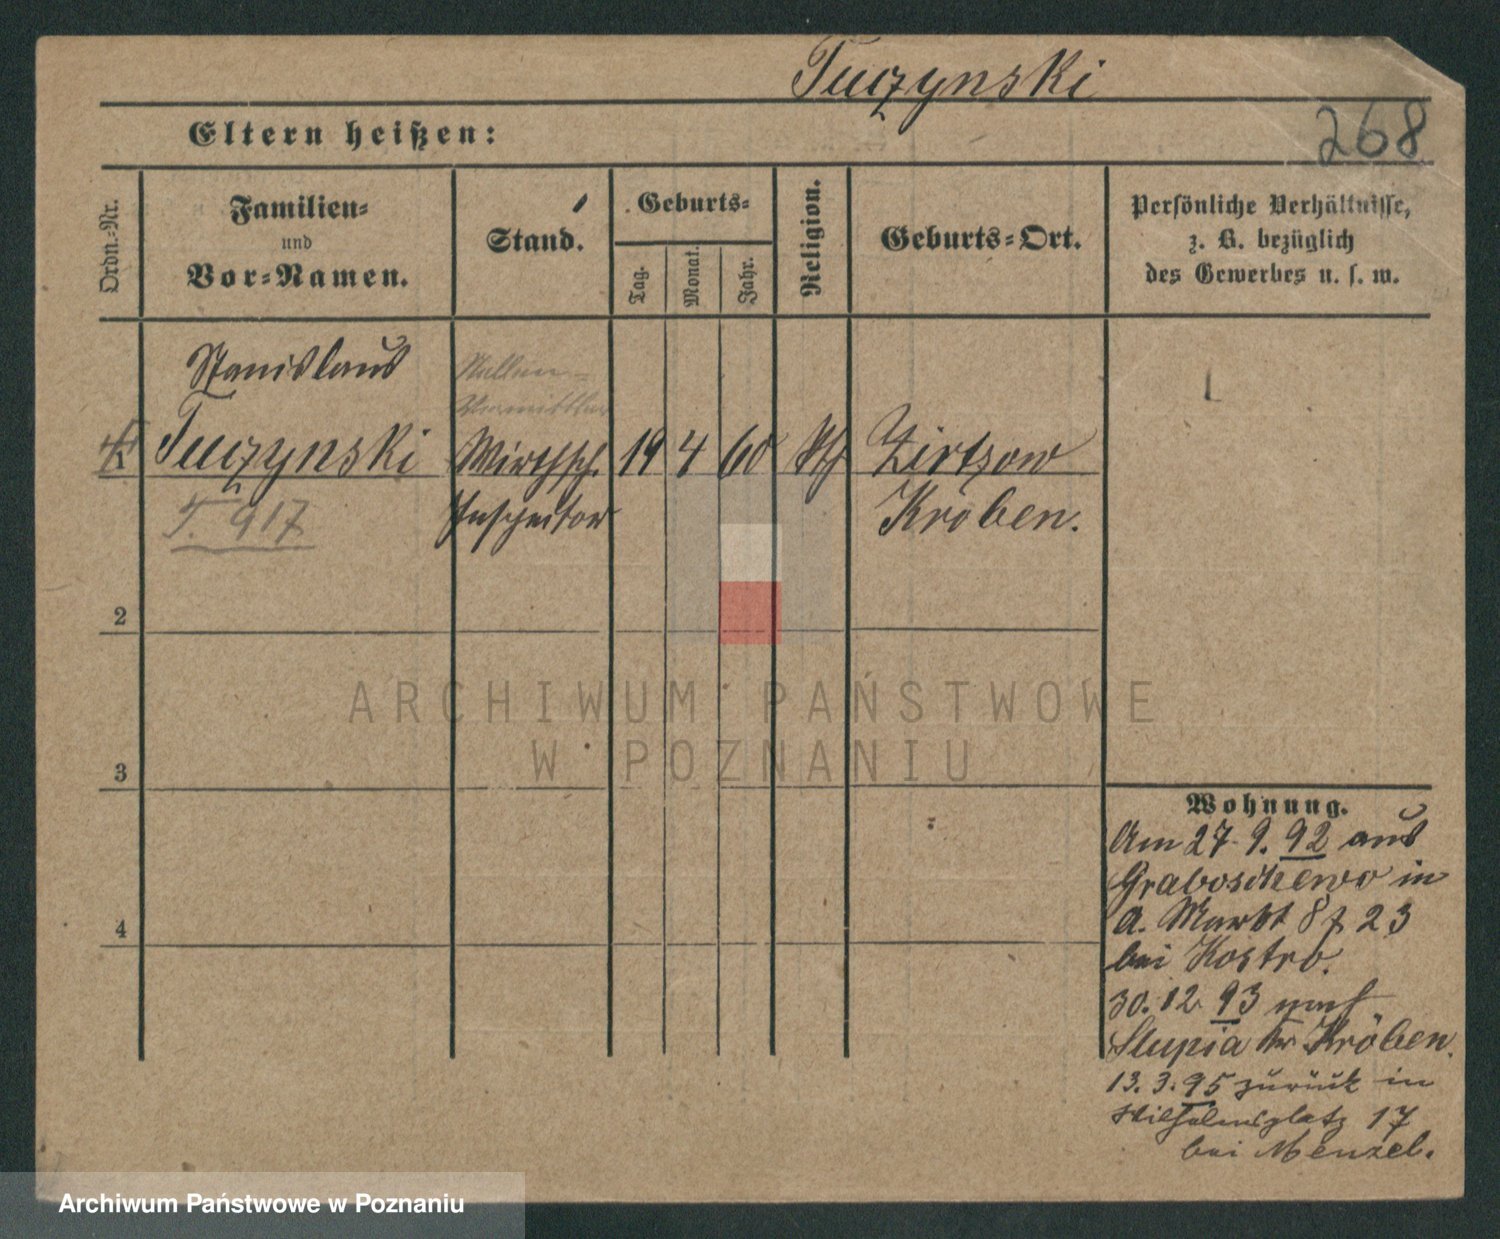 Tuczynski
268
Eltern heißen:
Ordn.-Nr.
Familien-
und
Vor-Namen.
Stand.
Geburts-
Tag.
Monat.
Jahr.
Religion.
Geburts-Ort.
Persönliche Verhältnisse,
z. B. bezüglich
des Gewerbes u. s. w.
Stanislaus
Stellen-
Vermittler
1
Tuczynski
Wirthsch.
19
4
60
kth
Zirtzow
T. 917
Inspector
Kröben.
2
3
4
ARCHIWUM PAŃSTWOWE
W POZNANIU
Wohnung.
Am 27. 9. 92 aus
Graboschewo in
a. Markt 82 23
bei Kostro.
30. 12. 93 nach
Slupia Kr Kröben.
13. 3. 95 zurück in
Wilhelmsplatz 17
bei Menzel.
Archiwum Państwowe w Poznaniu